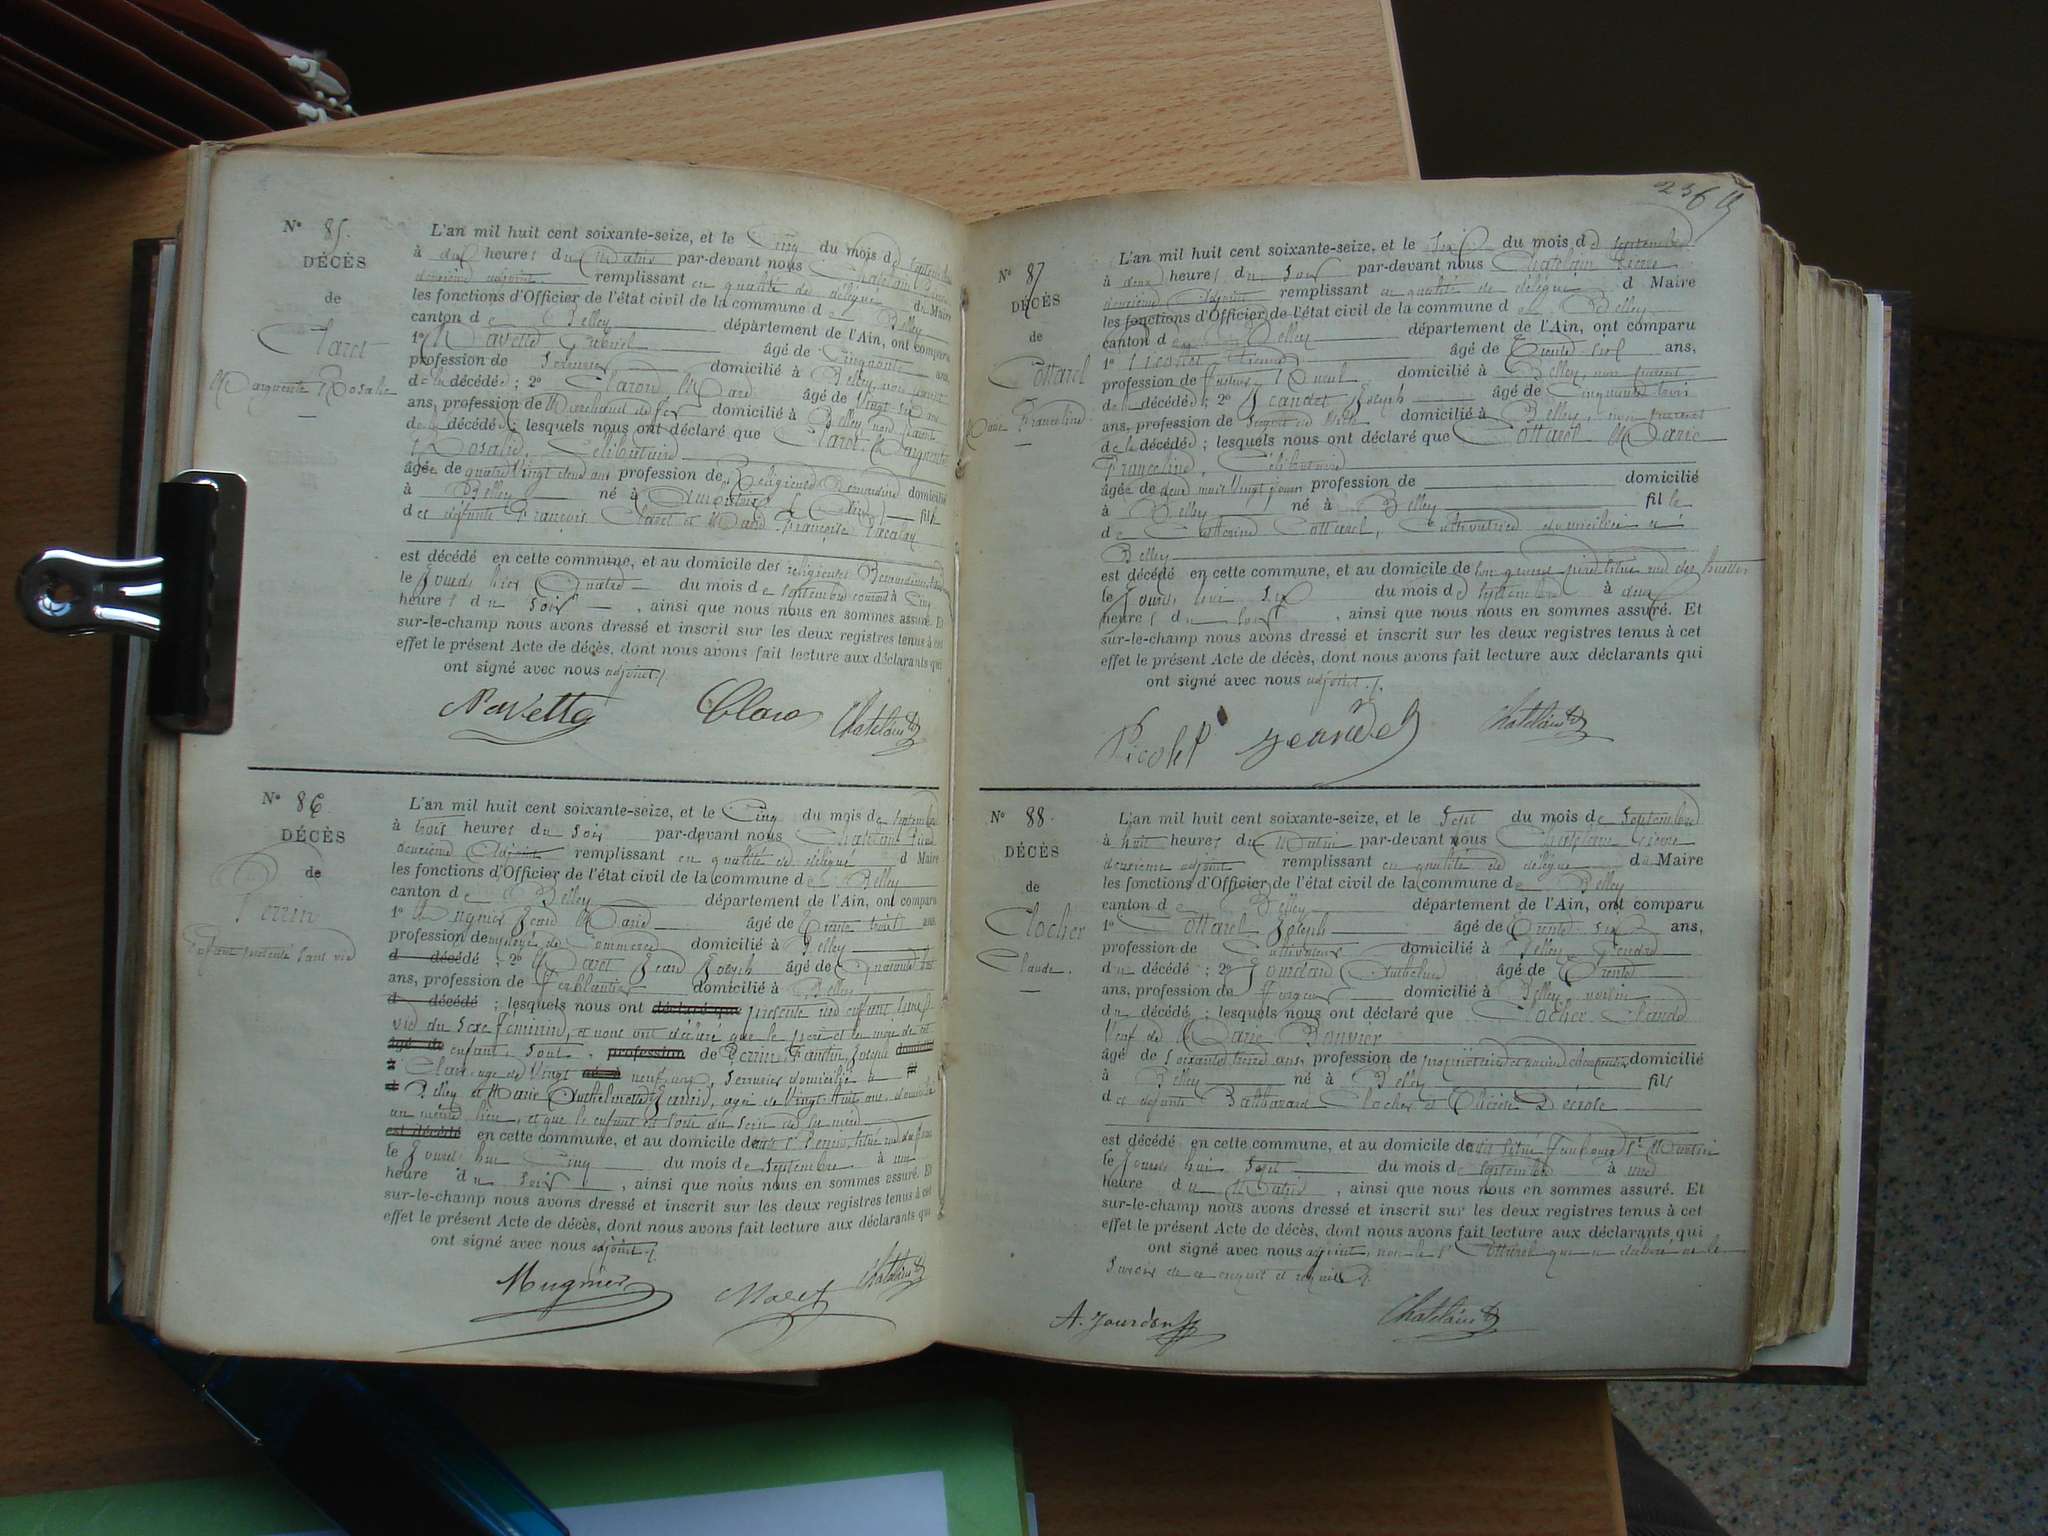 N° 85.
DÉCÈS
de
Claret
Marguerite Rosalie
L'an mil huit cent soixante-seize, et le Cinq du mois de septembre
à dix heures du Matin par-devant nous Chatelain Pierre
deuxième adjoint remplissant en qualité de délégué du Maire
les fonctions d'Officier de l'état civil de la commune de Belley
canton de Belley département de l'Ain, ont comparu
1° Navette âgé de Cinquante ans,
profession de domicilié à Belley, non parent
de la décédée ; 2° âgé de Vingt
ans, profession de Marchand de fer domicilié à Belley non parent
de la décédée ; lesquels nous ont déclaré que Claret Marguerite
Rosalie, Célibataire
âgée de quatre Vingt deux ans profession de Religieuse Bernardine domicilié
à Belley né à fille
des défunts François Claret et Marie Françoise
est décédé en cette commune, et au domicile des religieuses Bernardines
le Jourd'hier Quatre du mois de septembre courant à Cinq
heures du soir, ainsi que nous nous en sommes assuré. Et
sur-le-champ nous avons dressé et inscrit sur les deux registres tenus à cet
effet le présent Acte de décès, dont nous avons fait lecture aux déclarants qui
ont signé avec nous adjoint./.
Navette Claro Chatelain
N° 86.
DÉCÈS
de
Perrin
Enfant présenté sans vie
L'an mil huit cent soixante-seize, et le Cinq du mois de septembre
à trois heures du soir par-devant nous Chatelain Pierre
deuxième Adjoint remplissant en qualité de délégué d Maire
les fonctions d'Officier de l'état civil de la commune de Belley
canton de Belley département de l'Ain, ont comparu
1° Mugnier Jean Marie âgé de Trente trois ans
profession de employé de Commerce domicilié à Belley
d décédé ; 2° Maret Jean Joseph âgé de Quarante
ans, profession de Ferblantier domicilié à Belley
d décédé ; lesquels nous ont déclaré que présenté un enfant sans
vie du sexe féminin, et nous ont déclaré que le père et la mère de cet
âgé de enfant, sont, profession de Perrin Frantin, Joseph domicilié
Claude âgé de Vingt neuf ans, serrurier domicilié à
Belley et Marie Anthelmette Jeanin, âgée de Vingt huit ans, domiciliée
au même lieu, et que le enfant est sorti du sein de sa mère
est décédé en cette commune, et au domicile de Perrin, situé rue
le Jourd'hui Cinq du mois de septembre à une
heure du soir, ainsi que nous nous en sommes assuré. Et
sur-le-champ nous avons dressé et inscrit sur les deux registres tenus à cet
effet le présent Acte de décès, dont nous avons fait lecture aux déclarants qui
ont signé avec nous adjoint./.
Mugnier Maret Chatelain
236
N° 87
DÉCÈS
de
Cottarel
Marie Franceline
L'an mil huit cent soixante-seize, et le six du mois de septembre
à deux heures du soir par-devant nous Chatelain Pierre
deuxième Adjoint remplissant en qualité de délégué d Maire
les fonctions d'Officier de l'état civil de la commune de Belley
canton de Belley département de l'Ain, ont comparu
1° Picolet âgé de Trente six ans,
profession de facteur domicilié à Belley, non parent
de la décédée ; 2° Jeandet Joseph âgé de Cinquante trois
ans, profession de domicilié à Belley, non parent
de la décédée ; lesquels nous ont déclaré que Cottarel Marie
Franceline, Célibataire
âgée de deux mois Vingt jours profession de domicilié
à Belley né à Belley fille
de Cottarel, Cultivatrice domiciliée à
Belley
est décédé en cette commune, et au domicile de son grand père situé rue des
le Jourd'hui six du mois de septembre à deux
heures du soir, ainsi que nous nous en sommes assuré. Et
sur-le-champ nous avons dressé et inscrit sur les deux registres tenus à cet
effet le présent Acte de décès, dont nous avons fait lecture aux déclarants qui
ont signé avec nous adjoint./.
Picolet Jeandet Chatelain
N° 88.
DÉCÈS
de
Clocher
Claude.
L'an mil huit cent soixante-seize, et le sept du mois de septembre
à huit heures du Matin par-devant nous Chatelain Pierre
deuxième adjoint remplissant en qualité de délégué du Maire
les fonctions d'Officier de l'état civil de la commune de Belley
canton de Belley département de l'Ain, ont comparu
1° Cottarel Joseph âgé de Trente six ans,
profession de Cultivateur domicilié à Belley, Gendre
du décédé ; 2° Jourdan Anthelme âgé de Trente
ans, profession de Forgeur domicilié à Belley voisin
du décédé ; lesquels nous ont déclaré que Clocher Claude
Veuf de Marie Bonvier
âgé de soixante treize ans, profession de propriétaire et ancien charpentier domicilié
à Belley né à Belley fils
des défunts Balthazard Clocher et
est décédé en cette commune, et au domicile de situé faubourg St Martin
le Jourd'hui sept du mois de septembre à une
heure du Matin, ainsi que nous nous en sommes assuré. Et
sur-le-champ nous avons dressé et inscrit sur les deux registres tenus à cet
effet le présent Acte de décès, dont nous avons fait lecture aux déclarants qui
ont signé avec nous adjoint, non le Sr Cottarel qui a déclaré ne le
savoir de ce enquis et requis
A. Jourdan Chatelain